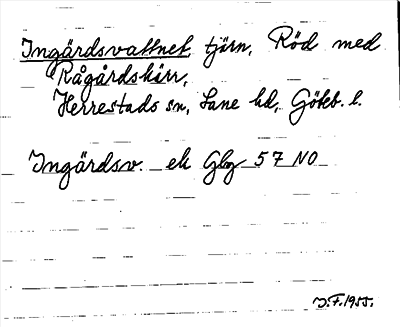 Ingärdsvattnet, tjärn, Röd med
Rågårdskärr,
Herrestads sn, Lane hd, Göteb. l.
Ingärdsv. ek Gbg 57 NO
J.F. 1955.